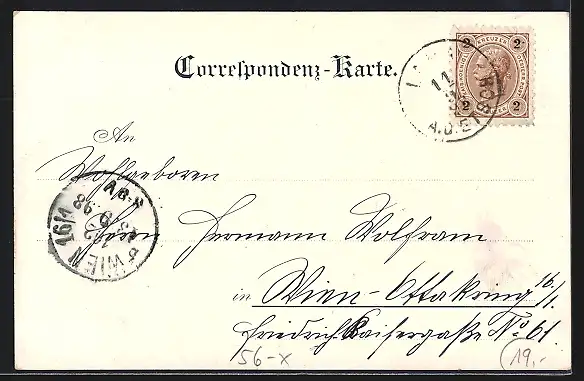 Correspondenz-Karte.
2 KREUZER 2
2 2
LA
11
A.D. ETSCH
An
Wohlgeboren
Herrn Hermann Wolfram
in Wien-Ottakring 16/1.
Friedrich Kaisergaße No 61.
16/1 WIEN
98
56-x
19,-